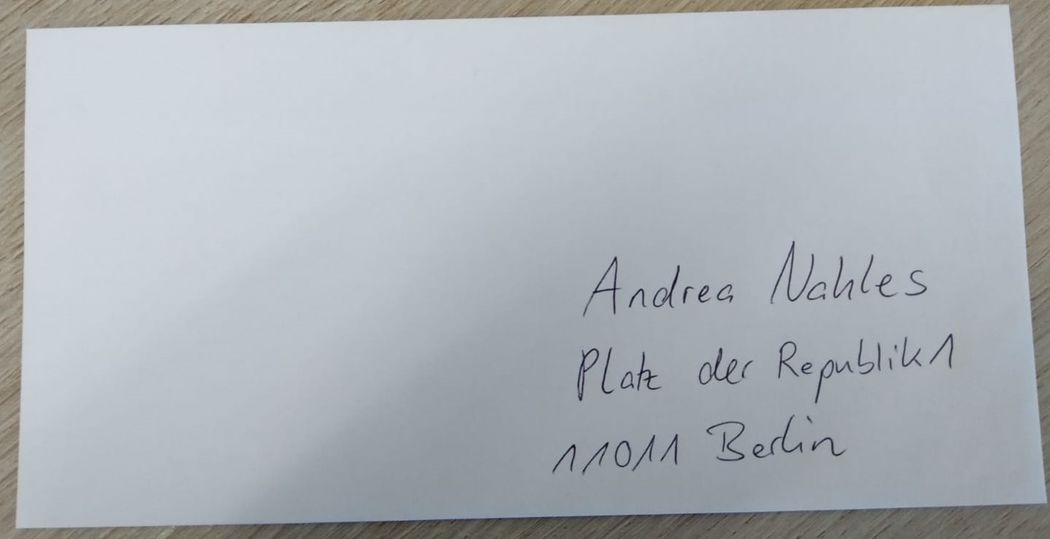 Andrea Nahles
Platz der Republik 1
11011 Berlin